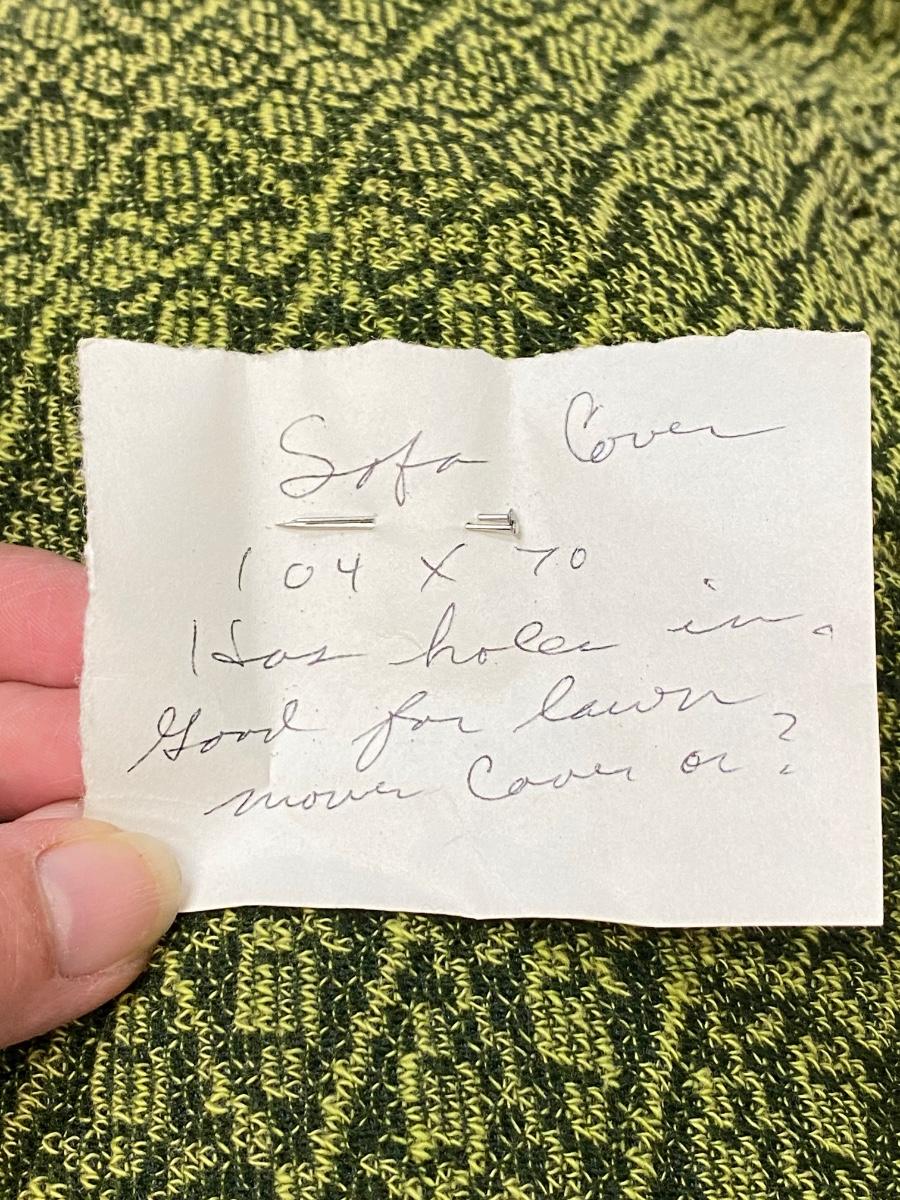 Sofa Cover
104 X 70
Has holes in.
Good for lawn
mower Cover or?